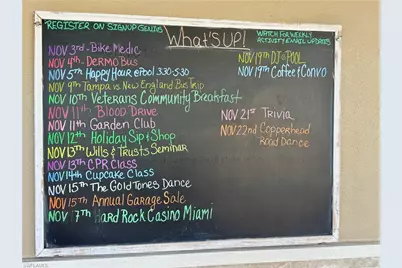 REGISTER ON SIGNUP GENIUS
What's UP!
WATCH FOR WEEKLY
ACTIVITY EMAIL UPDATES
NOV 3rd - Bike Medic
NOV 4th - DERMO BUS
NOV 5th Happy Hour @ Pool 3:30-5:30
NOV 9th Tampa vs New England Bus Trip
NOV 10th Veterans Community Breakfast
NOV 11th Blood Drive
NOV 11th Garden Club
NOV 12th Holiday Sip & Shop
NOV 13th Wills & Trusts Seminar
NOV 13th CPR Class
NOV 14th Cupcake Class
NOV 15th The Gold Tones Dance
NOV 15th Annual Garage Sale
NOV 17th Hard Rock Casino Miami
NOV 19th DJ @ POOL
NOV 19th Coffee & Convo
NOV 21st Trivia
NOV 22nd Copperhead
Road Dance